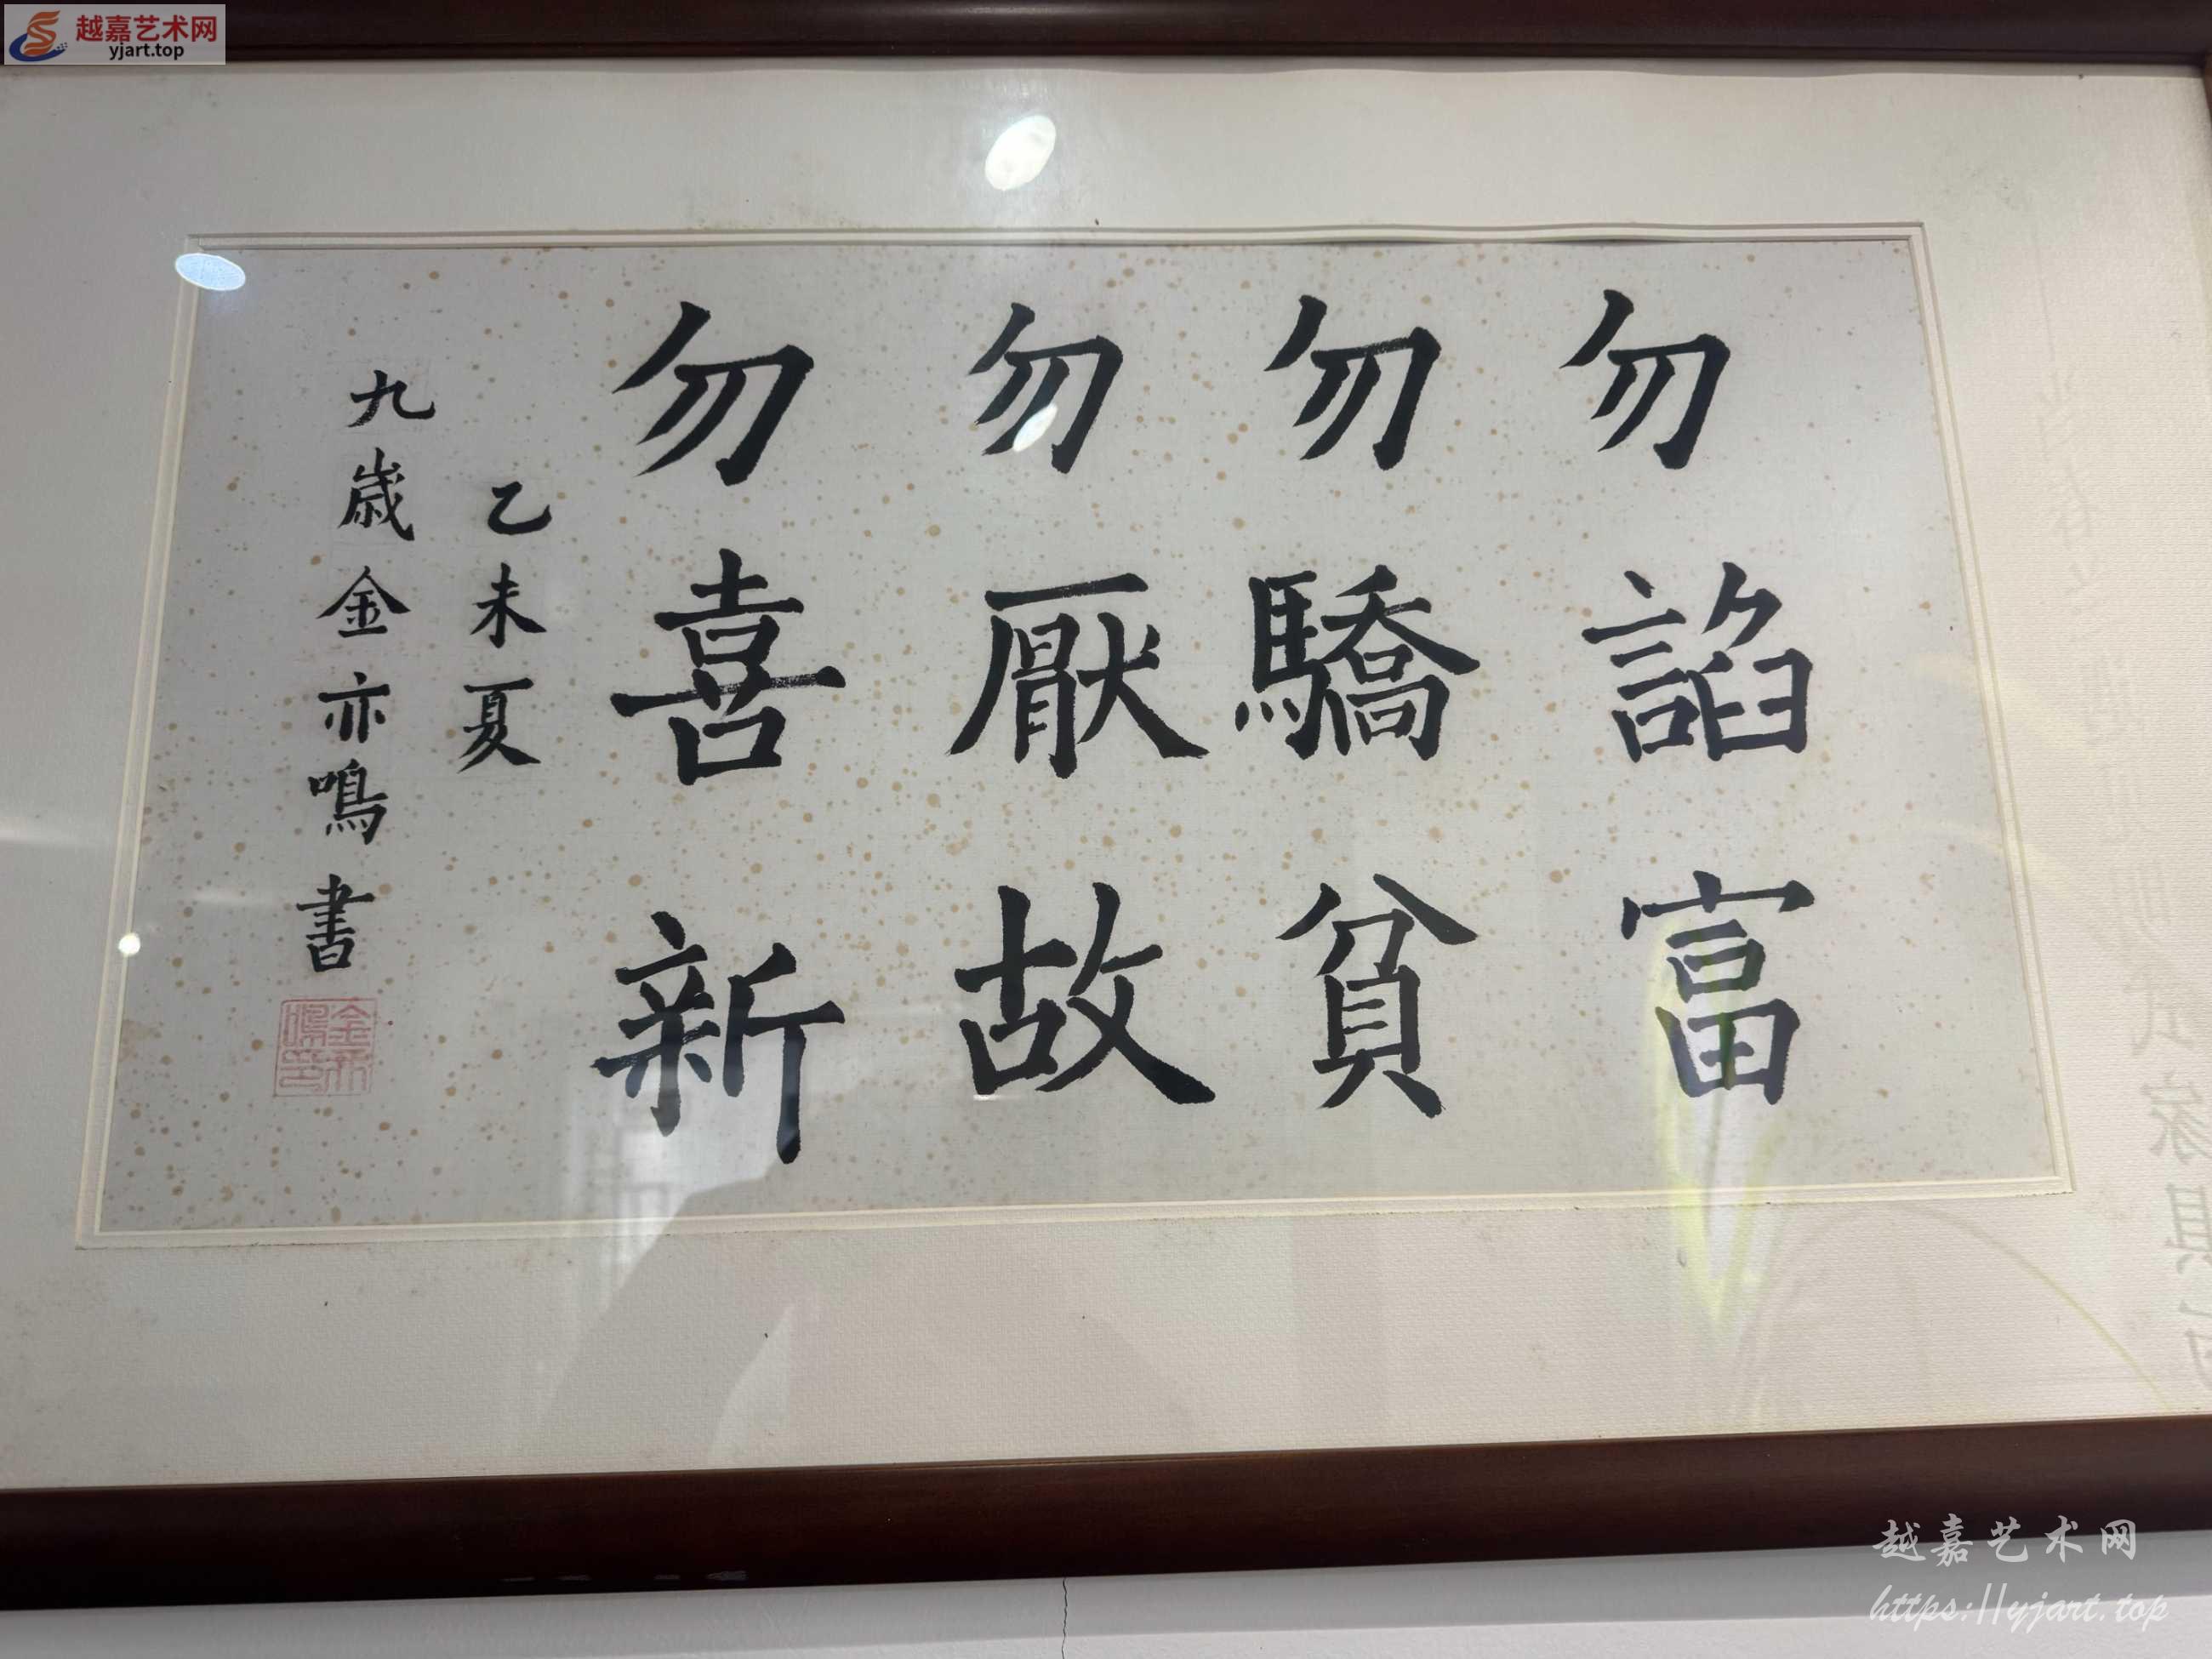 越嘉艺术网
yjart.top
勿諂富
勿驕貧
勿厭故
勿喜新
乙未夏
九歲金亦鳴書
金亦鳴印
越嘉艺术网
https://yjart.top